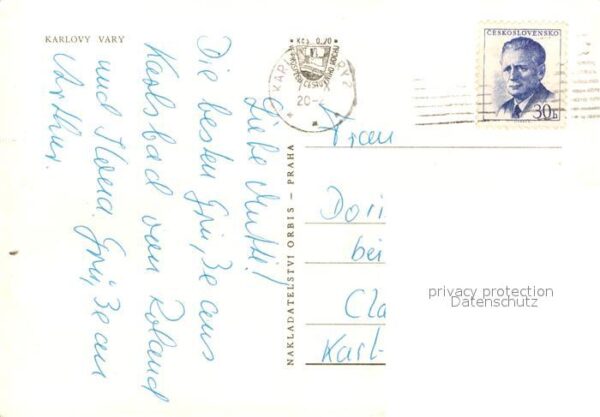 KARLOVY VARY
Liebe Mutti!
Die besten Grüße aus
Karlsbad von Roland
und Ilona. Grüße an
Arthur.
NAKLADATELSTVÍ ORBIS – PRAHA
Kčs 0,70
KAR
20
ČESKOSLOVENSKO
30h
Frau
Dori
bei
Cla
Karl-
privacy protection
Datenschutz